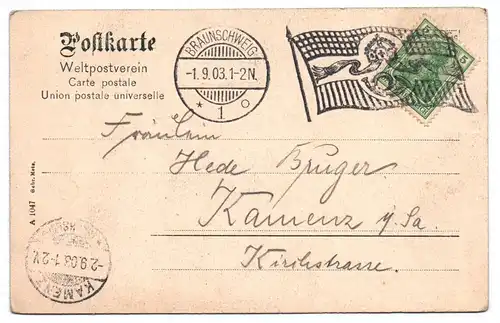 Postkarte
Weltpostverein
Carte postale
Union postale universelle
BRAUNSCHWEIG
-1.9.03.1-2N.
* 1 o
5
Fräulein
Hede Brüger
Kamenz i/Sa.
Kirchstrasse.
A 1047 Gebr. Metz.
-2.9.03 1-2V.
KAMENZ